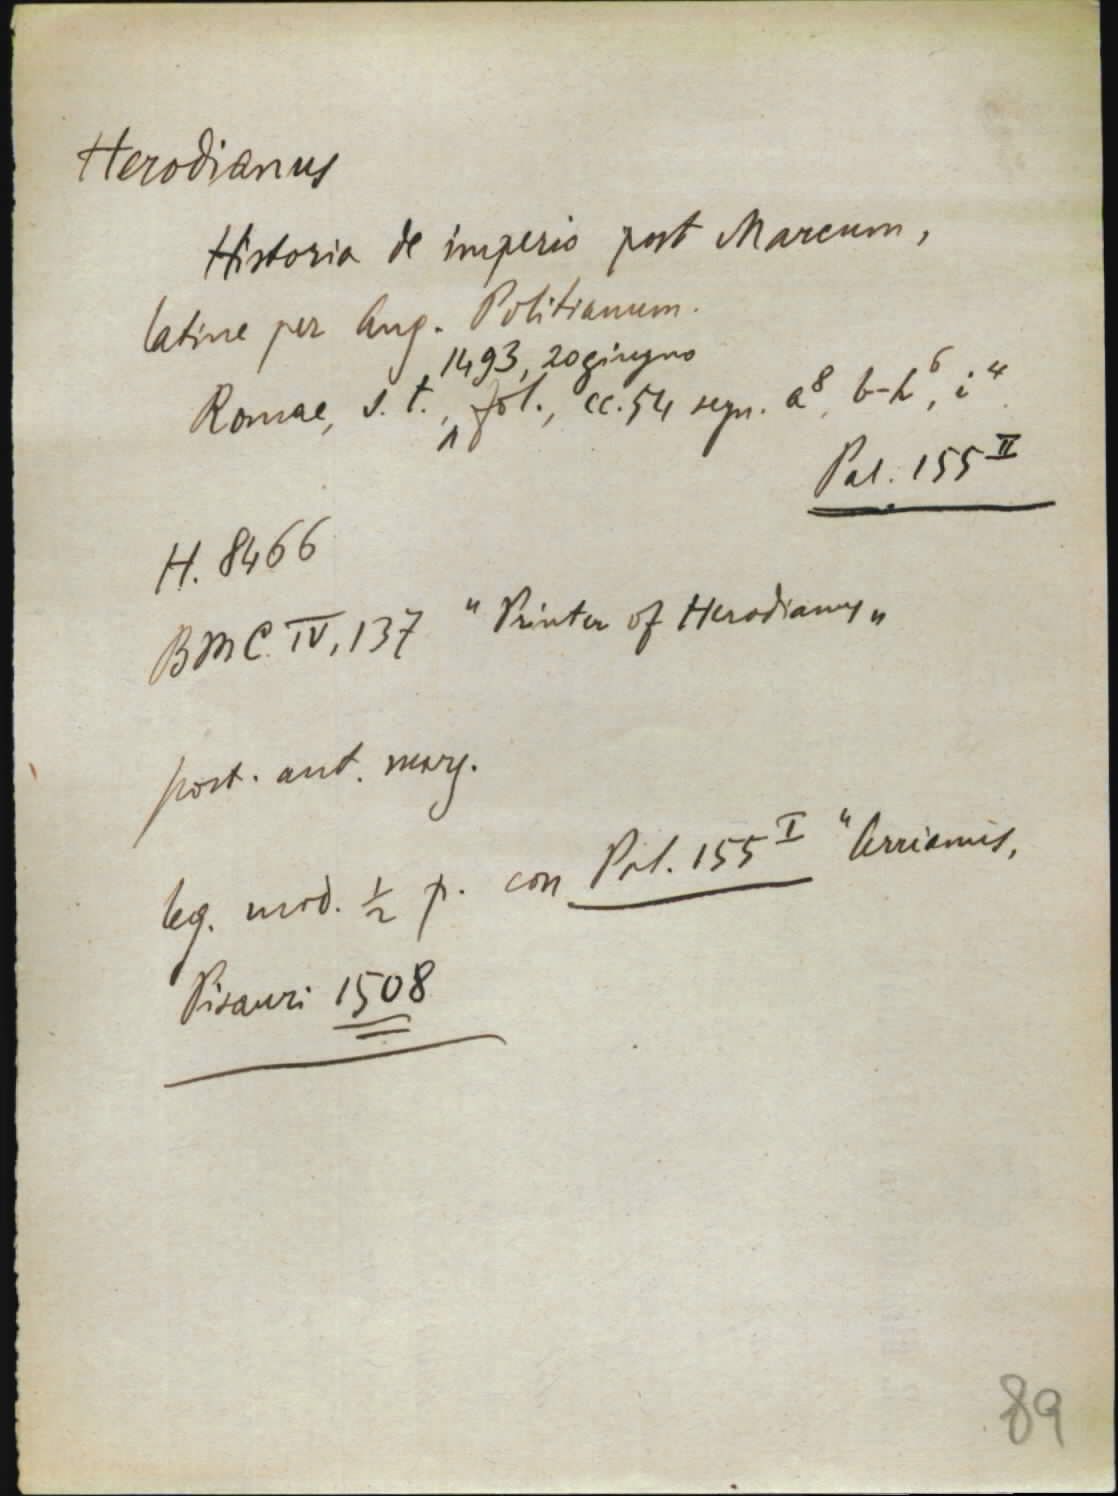 Herodianus
Historia de imperio post Marcum,
latine per Ang. Politianum.
1493, 20 giugno
Romae, s. t., ∧ fol., cc. 54 segn. a⁸, b-h⁶, i⁴.
Pal. 155 II
H. 8466
BMC. IV, 137 "Printer of Herodianus"
post. ant. marg.
leg. mod. ½ p. con Pal. 155 I "Arrianus,
Pisauri 1508
89